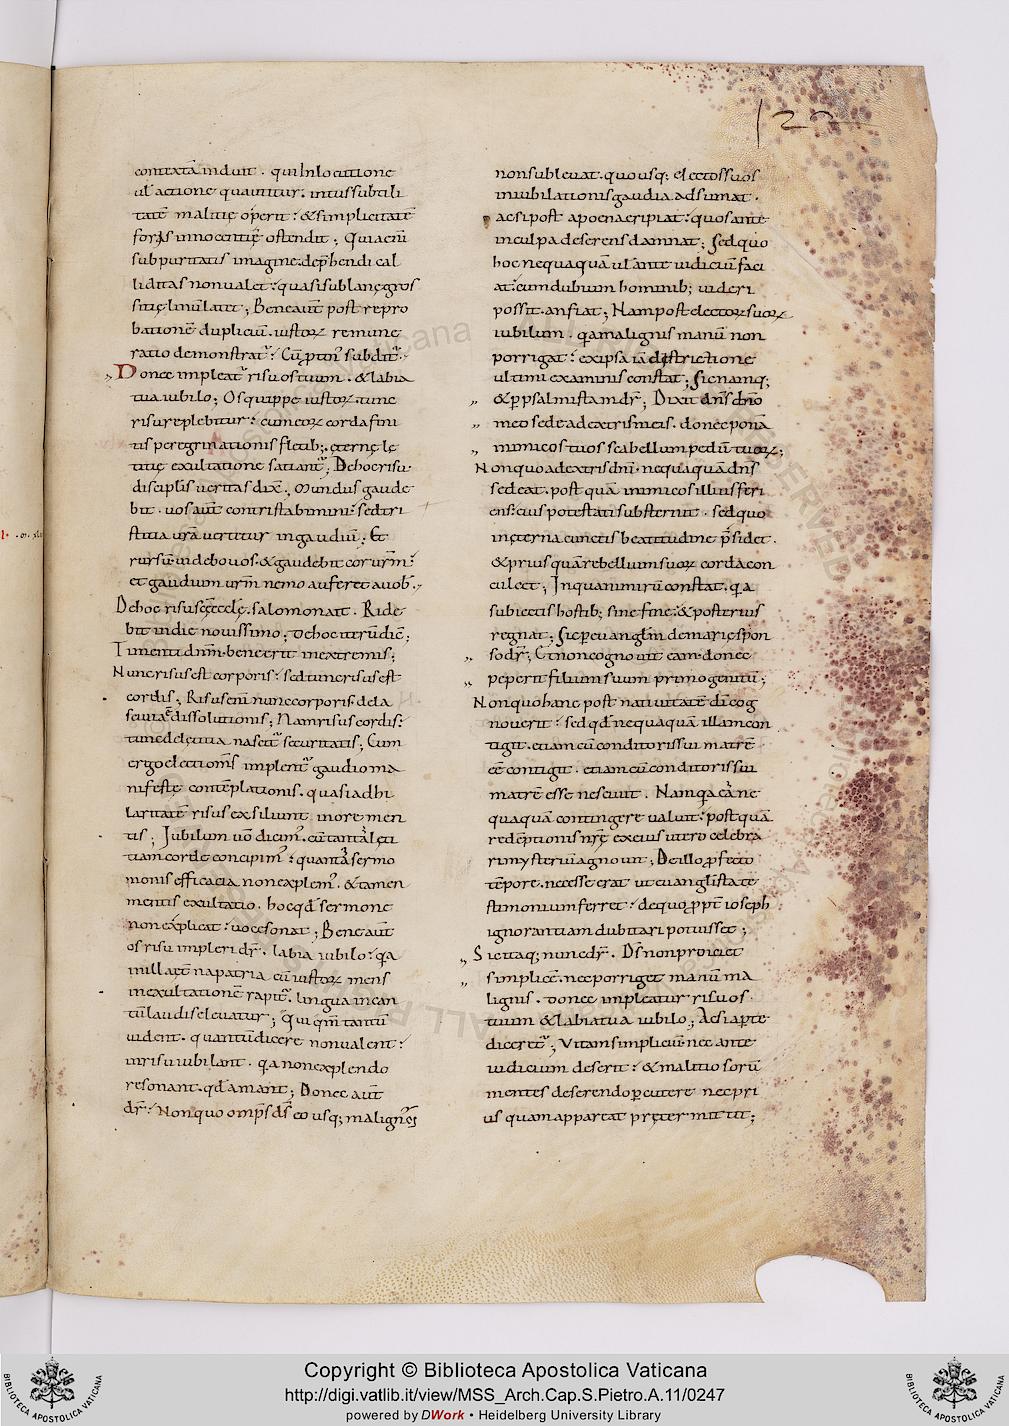 122
contextā induit . qui in locutione
ul̄ actione quatitur . intus subtili
tatē malitię operit : & simplicitatē
foris innocentię ostendit ; Qui a cum̄
sub puritatis imagine dep̄hendi cal
liditas non ualet : quasi sub lanę gros
sitię linū latet ; Bene aut̄ post repro
batione duplicium . iustoꝝ remune
ratio demonstrat̄ : Cū ꝓtin̄ subdit̄ .
Donec impleat̄ risu os tuum . & labia
tua iubilo ; Os quippe iustoꝝ tunc
risu replebitur : cum eoꝝ corda fini
tis peregrinationis fletib; ęternę lę
titię exultatione satiant̄ ; De hoc risu
discipulis ueritas dix̄ ., Mundus gaude
bit . uos aut̄ contristabimini : sed tri
stitia ur̄a uertitur in gaudiū ; Et
rursū uidebo uos . & gaudebit cor ur̄m :
et gaudium ur̄m nemo auferet a uob̄ .
De hoc risu sc̄ę ecclę . salomon ait . Ride
bit in die nouissimo ; De hoc iterū dic̄ ;
Timenti dnm̄ . bene erit in extremis ;
Nunc risus est corporis : sed tunc risus est
cordis ; Risus enī nunc corporis . de la
sciuia ē dissolutionis ; Nam risus cordis :
tunc de lętitia nascet̄ securitatis ; Cum
ergo electi om̄s implent̄ gaudio ma
nifestę contēplationis . quasi ad hi
laritatē risus exsiliunt in ore men
tis ; Iubilum uō dicim̄ . cū tantā lęti
tiam corde concipim̄ : quantā sermo
monis efficacia non explem̄ . & tamen
mentis exultatio . hoc qd̄ sermone
non explicat : uoce sonat ; Bene aut̄
os risu impleri dr̄ . labia iubilo : qa
in illa ęt̄na patria cū iustoꝝ mens
in exultationē rapit̄ . lingua in can
tū laudis eleuatur ; Qui qm̄ tantū
uident . quantū dicere non ualent :
in risu iubilant . qa non explendo
resonant . qd̄ amant ; Donec aut̄
dr̄ : Non quo omp̄s ds̄ eo usq; malignos
non subleuat . quo usq; electos suos
in iubilationis gaudia adsumat .
ac si post a poena eripiat : quos ante
in culpa deserens damnat ; Sed quo
hoc nequaquā ul̄ ante iudiciū faci
at : cum dubium hominib; uideri
possit . an fiat ; Nam post electoꝝ suoꝝ
iubilum . qa malignis manū non
porrigat : ex ipsa iā districtione
ultimi examinis constat ; Sic namq;
& ꝑ psalmistam dr̄ ; Dixit dn̄s dn̄o
meo sede a dextris meis . donec ponā
inimicos tuos scabellum pedū tuoꝝ ;
Non quo a dextris dnī . nequaquā dn̄s
sedeat . post quā inimicos illius feri
ens : eius potestati substernit . sed quo
in ęterna cunctis beatitudine p̄sidet .
& prius quā rebellium suoꝝ corda con
culcet ; In qua nimirū constat . qa
subiectis hostib; sine fine & posterius
regnat ; Sic ꝑ euangliū de marię spon
so dr̄ ; Et non cognouit eam . donec
peperit filium suum primogenitū ;
Non quo hanc post natiuitatē dnī cog
nouerit : sed qd̄ nequaquā illam con
tigit . etiam cū conditoris sui matrē
eē contigit . etiam cū conditoris sui
matrē esse nesciuit . Nam qa eā ne
quaquā contingere ualuit : postquā
redēptionis nr̄ę ex eius utero celebra
ri mysteriū agnouit ; De illo ꝓfecto
tēpore . necesse erat ut euanglista te
stimonium ferret : de quo ꝓpt̄ ioseph
ignorantiam dubitari potuisset ;
Sic itaq; nunc dr̄ . Ds̄ non proiciet
simplicē . nec porriget manū ma
lignis . donec impleatur risu os
tuum & labia tua iubilo ; Ac si aperte
diceret̄ ; Vitam simpliciū nec ante
iudicium deserit : & malitiosorū
mentes deserendo ꝑcutere nec pri
us quam appareat prętermittit ;
Copyright © Biblioteca Apostolica Vaticana
http://digi.vatlib.it/view/MSS_Arch.Cap.S.Pietro.A.11/0247
powered by DWork • Heidelberg University Library
BIBLIOTECA APOSTOLICA VATICANA
BIBLIOTECA APOSTOLICA VATICANA